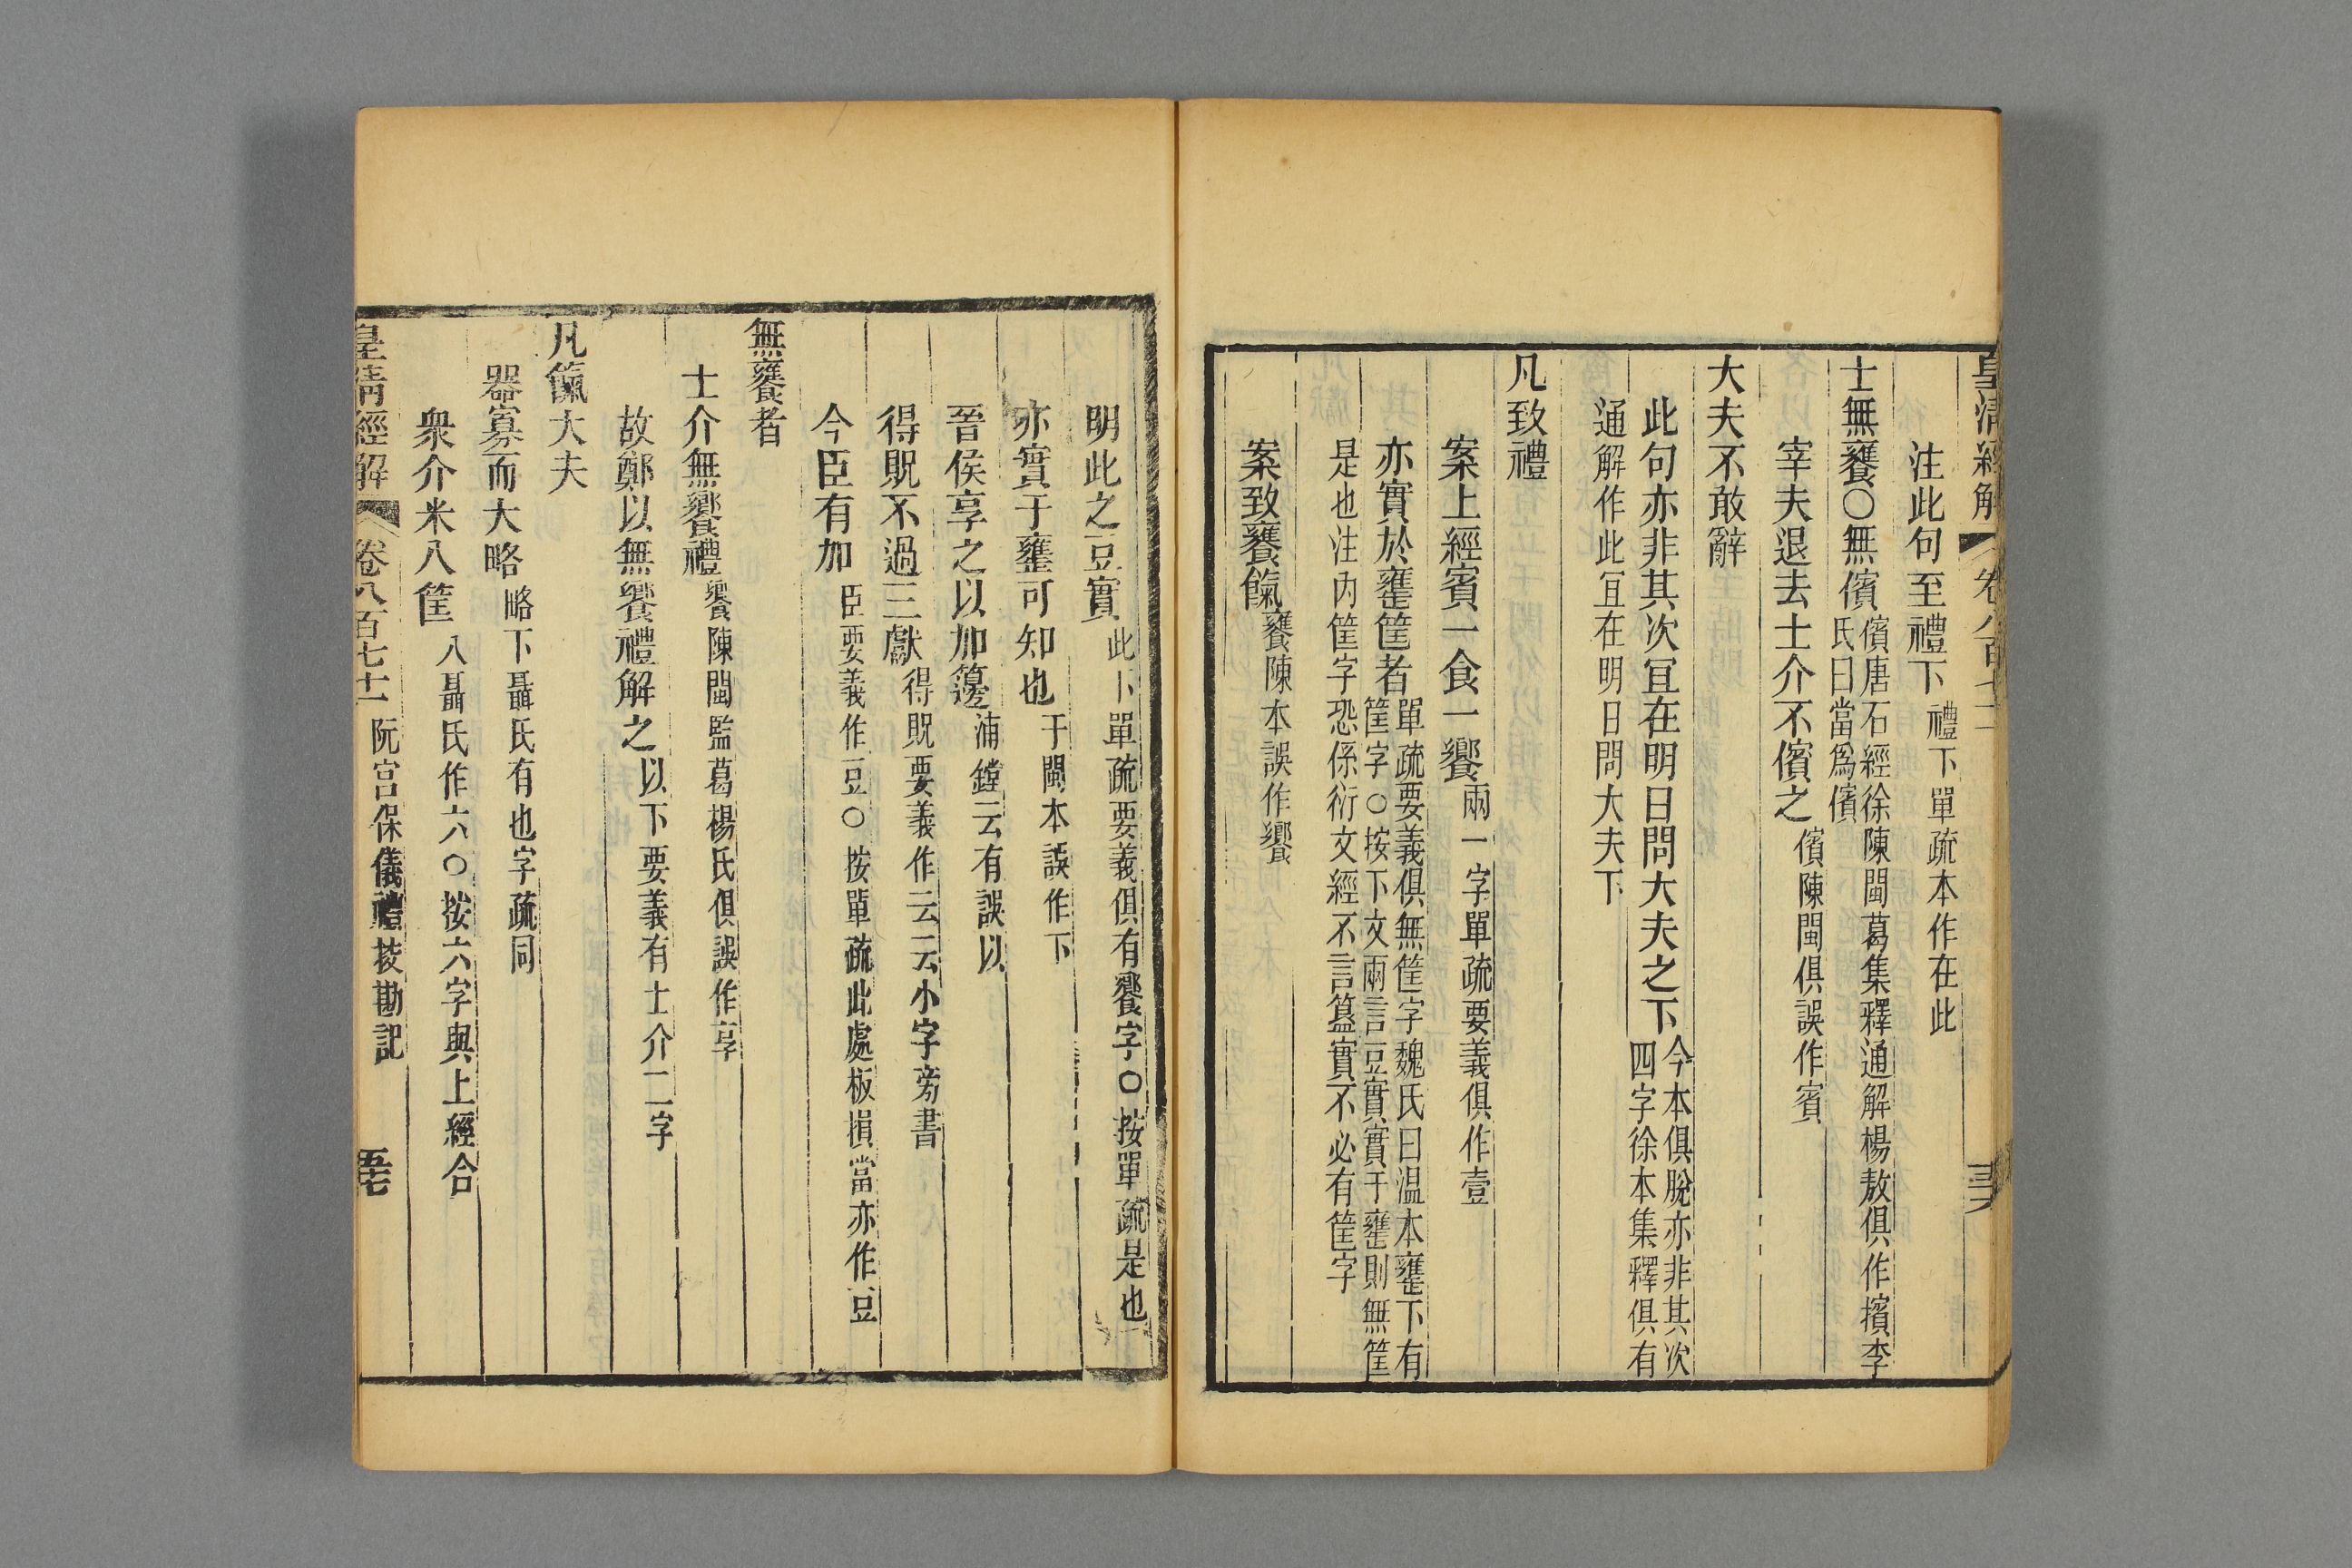 皇清經解 卷八百七十二
注此句至禮下 禮下單疏本作在此
士無饔〇無儐 儐唐石經徐陳閩葛集釋通解楊敖俱作擯李
氏曰當爲儐
宰夫退去士介不儐之 儐陳閩俱誤作賓
大夫不敢辭
此句亦非其次宜在明日問大夫之下 今本俱脫亦非其次
四字徐本集釋俱有
通解作此宜在明日問大夫下
凡致禮
案上經賓一食一饗 兩一字單疏要義俱作壹
亦實於罋筐者 單疏要義俱無筐字魏氏曰温本罋下有
筐字〇按下文兩言豆實實于罋則無筐
是也注内筐字恐係衍文經不言簋實不必有筐字
案致饔餼 饔陳本誤作饗
明此之豆實 此下單疏要義俱有饗字〇按單疏是也
亦實于罋可知也 于閩本誤作下
晉侯享之以加籩 浦鏜云有誤以
得貺不過三獻 得貺要義作云云小字旁書
今臣有加 臣要義作豆〇按單疏此處板損當亦作豆
無饔者
士介無饗禮 饗陳閩監葛楊氏俱誤作享
故鄭以無饗禮解之 以下要義有士介二字
凡餼大夫
器寡而大略 略下聶氏有也字疏同
衆介米八筐 八聶氏作六〇按六字與上經合
皇清經解 卷八百七十二 阮宮保儀禮挍勘記